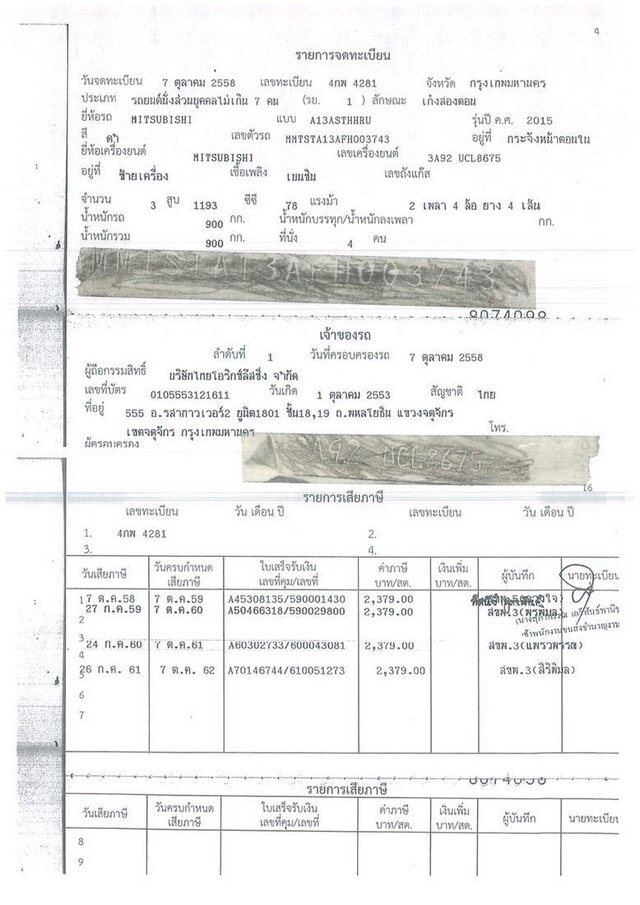 4
รายการจดทะเบียน
วันจดทะเบียน 7 ตุลาคม 2558 เลขทะเบียน 4กพ 4281 จังหวัด กรุงเทพมหานคร
ประเภท รถยนต์นั่งส่วนบุคคลไม่เกิน 7 คน (รย. 1 ) ลักษณะ เก๋งสองตอน
ยี่ห้อรถ MITSUBISHI แบบ A13ASTHHRU รุ่นปี ค.ศ. 2015
สี ดำ เลขตัวรถ MMTSTA13AFH003743 อยู่ที่ กระจังหน้าตอนใน
ยี่ห้อเครื่องยนต์ MITSUBISHI เลขเครื่องยนต์ 3A92 UCL8675
อยู่ที่ ซ้ายเครื่อง เชื้อเพลิง เบนซิน เลขถังแก๊ส
จำนวน 3 สูบ 1193 ซีซี 78 แรงม้า 2 เพลา 4 ล้อ ยาง 4 เส้น
น้ำหนักรถ 900 กก. น้ำหนักบรรทุก/น้ำหนักลงเพลา กก.
น้ำหนักรวม 900 กก. ที่นั่ง 4 คน
MMTSTA13AFH003743
8074098
เจ้าของรถ
ลำดับที่ 1 วันที่ครอบครองรถ 7 ตุลาคม 2558
ผู้ถือกรรมสิทธิ์ บริษัทไทยโอริกซ์ลีสซิ่ง จำกัด
เลขที่บัตร 0105553121611 วันเกิด 1 ตุลาคม 2553 สัญชาติ ไทย
ที่อยู่ 555 อ.รสาทาวเวอร์2 ยูนิต1801 ชั้น18,19 ถ.พหลโยธิน แขวงจตุจักร
เขตจตุจักร กรุงเทพมหานคร โทร.
ผู้ครอบครอง
3A92 UCL8675
16
รายการเสียภาษี
เลขทะเบียน วัน เดือน ปี เลขทะเบียน วัน เดือน ปี
1. 4กพ 4281 2.
3. 4.
วันเสียภาษี วันครบกำหนดเสียภาษี ใบเสร็จรับเงินเลขที่คุม/เลขที่ ค่าภาษีบาท/สต. เงินเพิ่มบาท/สต. ผู้บันทึก นายทะเบียน
1 7 ต.ค.58 7 ต.ค.59 A45308135/590001430 2,379.00
27 ก.ค.59 7 ต.ค.60 A50466318/590029800 2,379.00 สขพ.3
2
3
24 ก.ค.60 7 ต.ค.61 A60302733/600043081 2,379.00 สขพ.3(แพรวพรรณ)
4
26 ก.ค. 61 7 ต.ค. 62 A70146744/610051273 2,379.00 สขพ.3(สิริพิมล)
5
6
7
รายการเสียภาษี
วันเสียภาษี วันครบกำหนดเสียภาษี ใบเสร็จรับเงินเลขที่คุม/เลขที่ ค่าภาษีบาท/สต. เงินเพิ่มบาท/สต. ผู้บันทึก นายทะเบียน
8
9